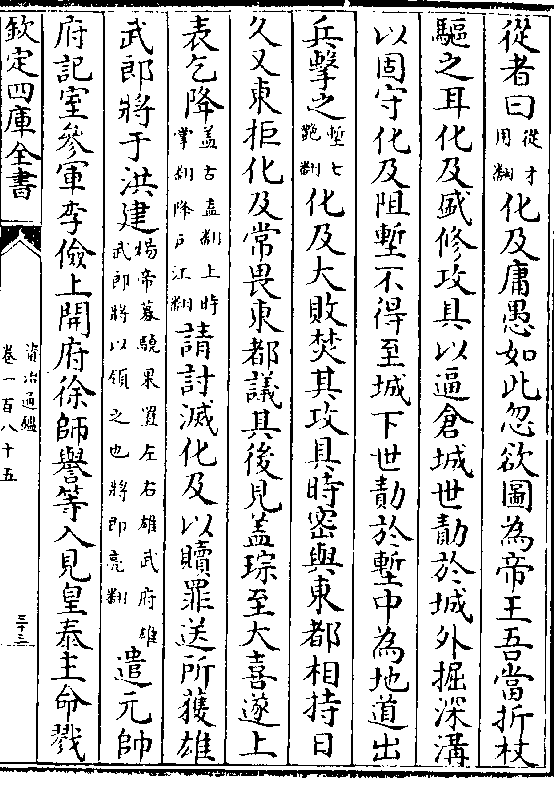 從者曰從才用翻化及庸愚如此忽欲圖為帝王吾當折杖
驅之耳化及盛修攻具以逼倉城世勣於城外掘深溝
以固守化及阻塹不得至城下世勣於塹中為地道出
兵擊之塹七艷翻化及大敗焚其攻具時密與東都相持日
久又東拒化及常畏東都議其後見盖琮至大喜遂上
表乞降盖古盍翻上時掌翻降戶江翻請討滅化及以贖罪送所獲雄
武郎將于洪建煬帝募驍果置左右雄武府雄武郎將以領之也將即亮翻遣元帥
府記室參軍李儉上開府徐師譽等入見皇泰主命戮
欽定四庫全書
資治通鑑
卷一百八十五
三十三